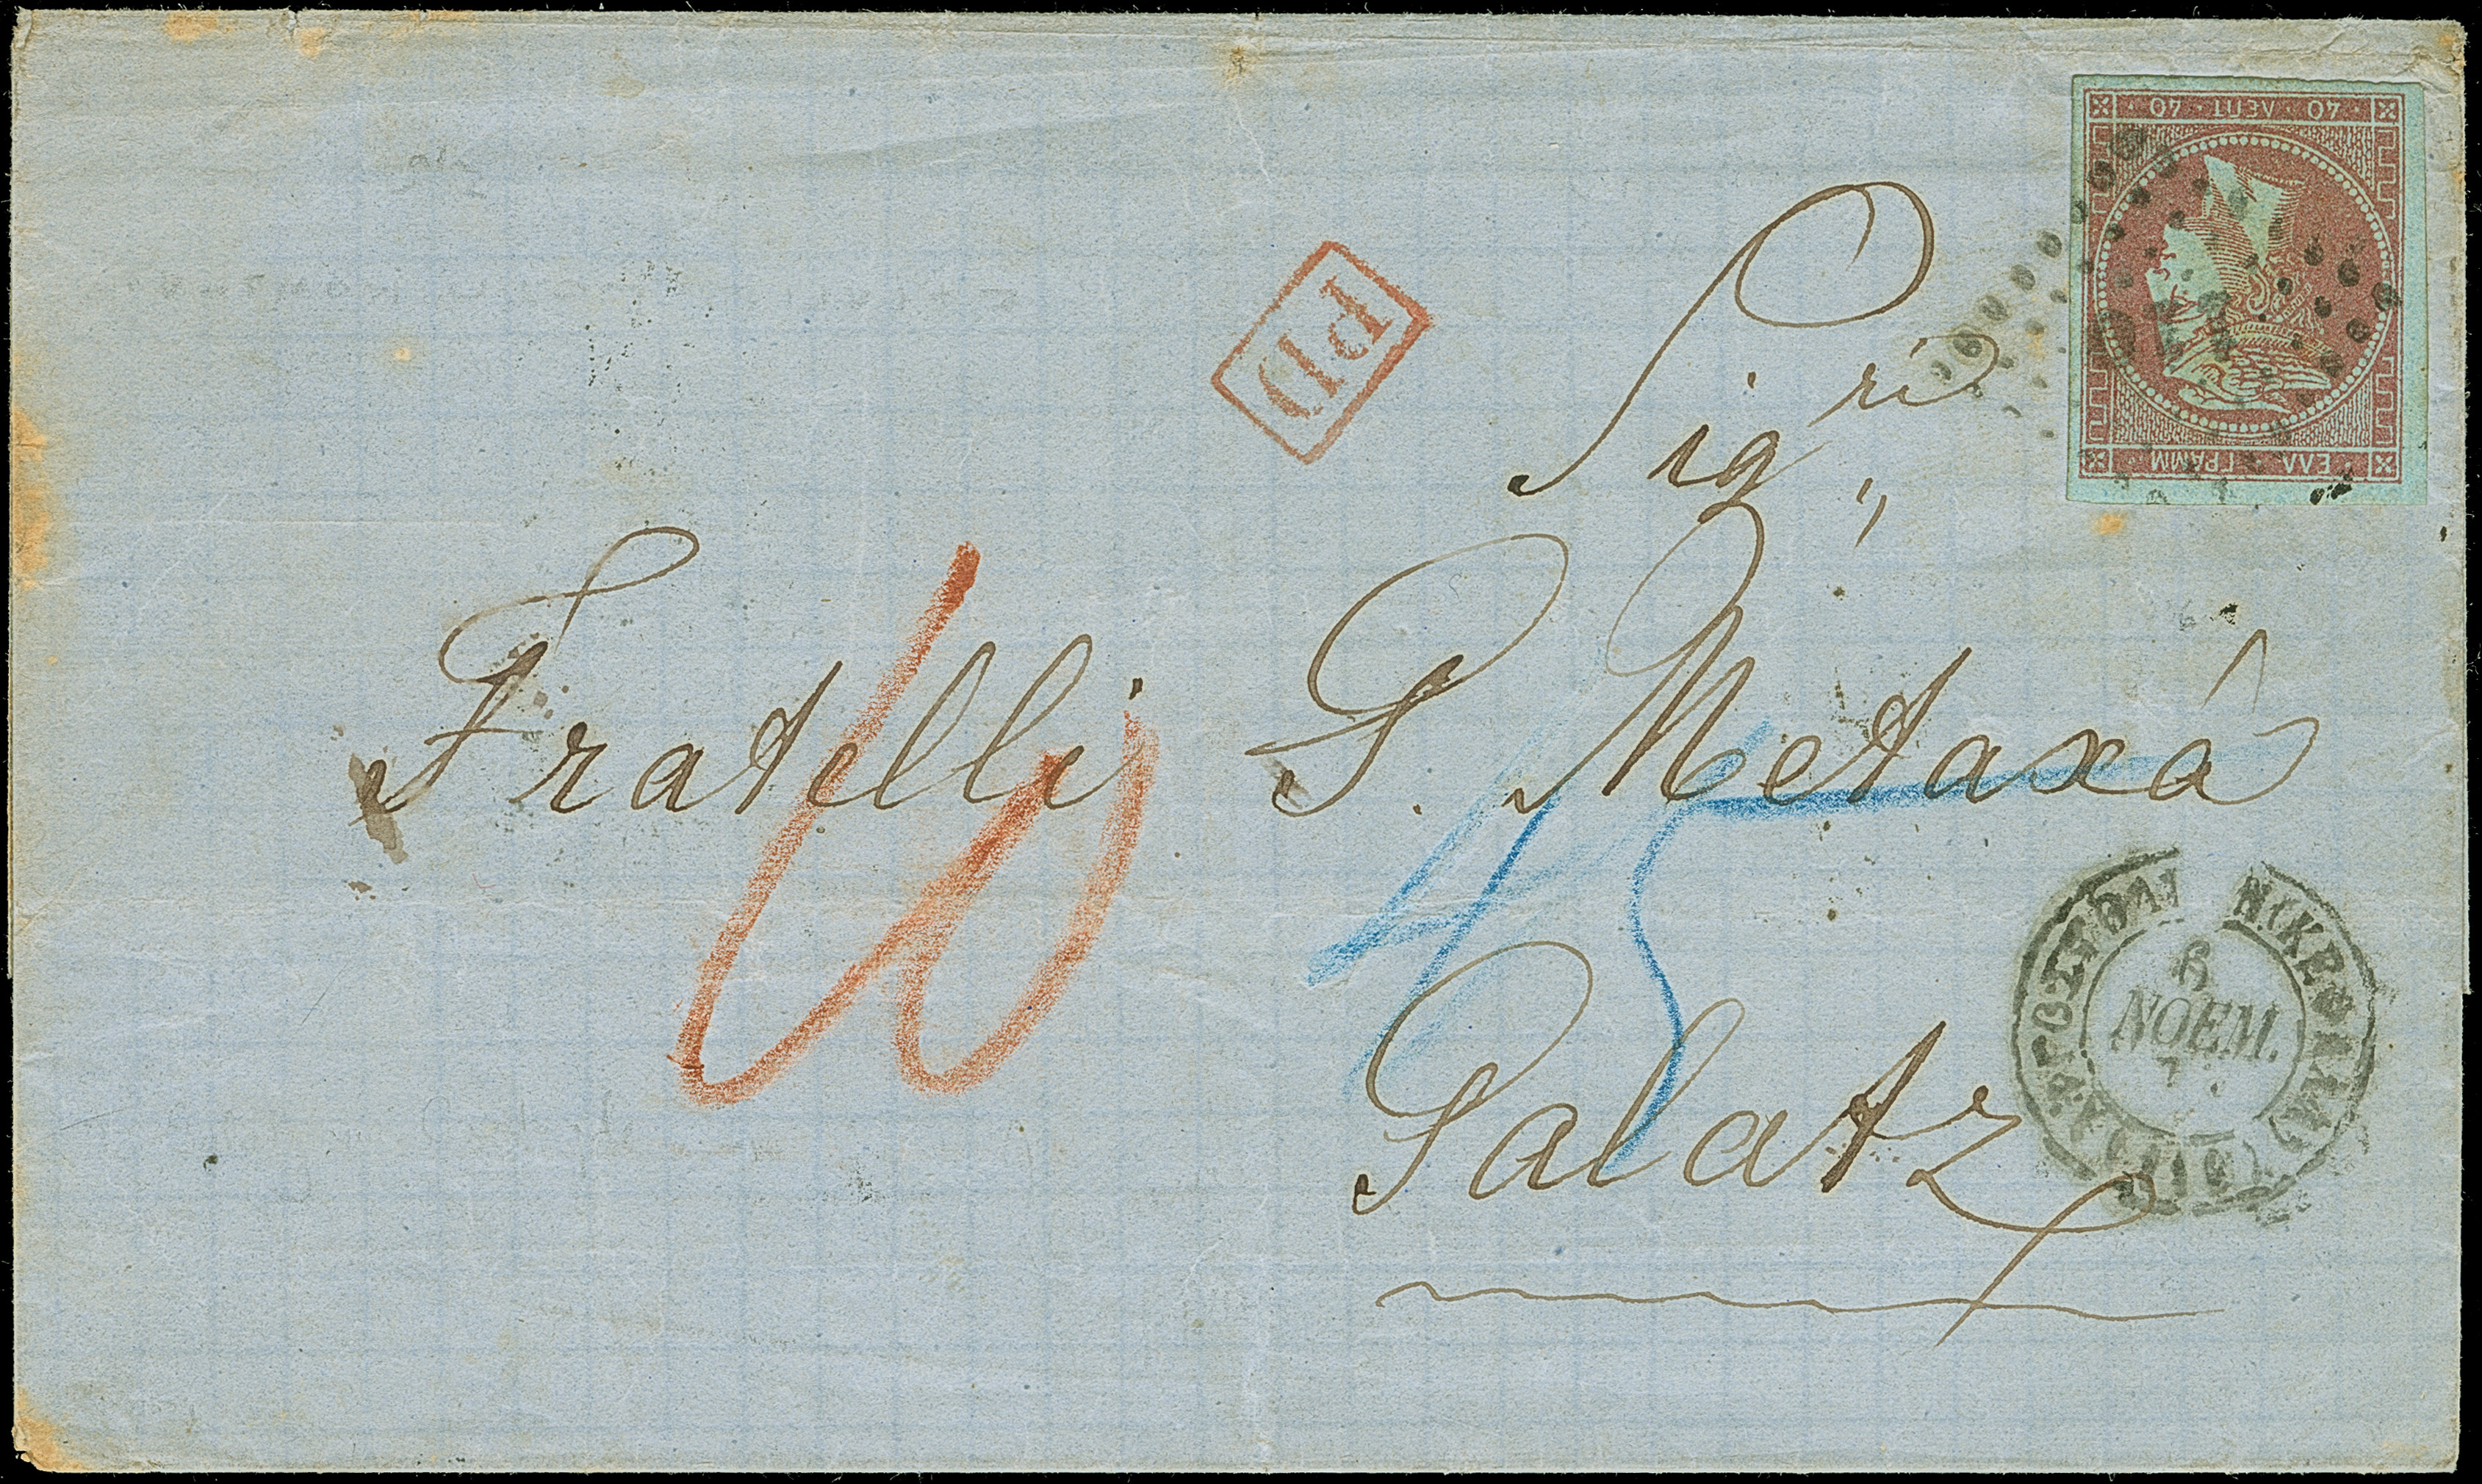 40 · ΛΕΠΤ · 40
ΕΛΛ · ΓΡΑΜΜ
PD
Sig.ri
Fratelli G. Metaxá
Galatz
10
45
6
ΝΟΕΜ.